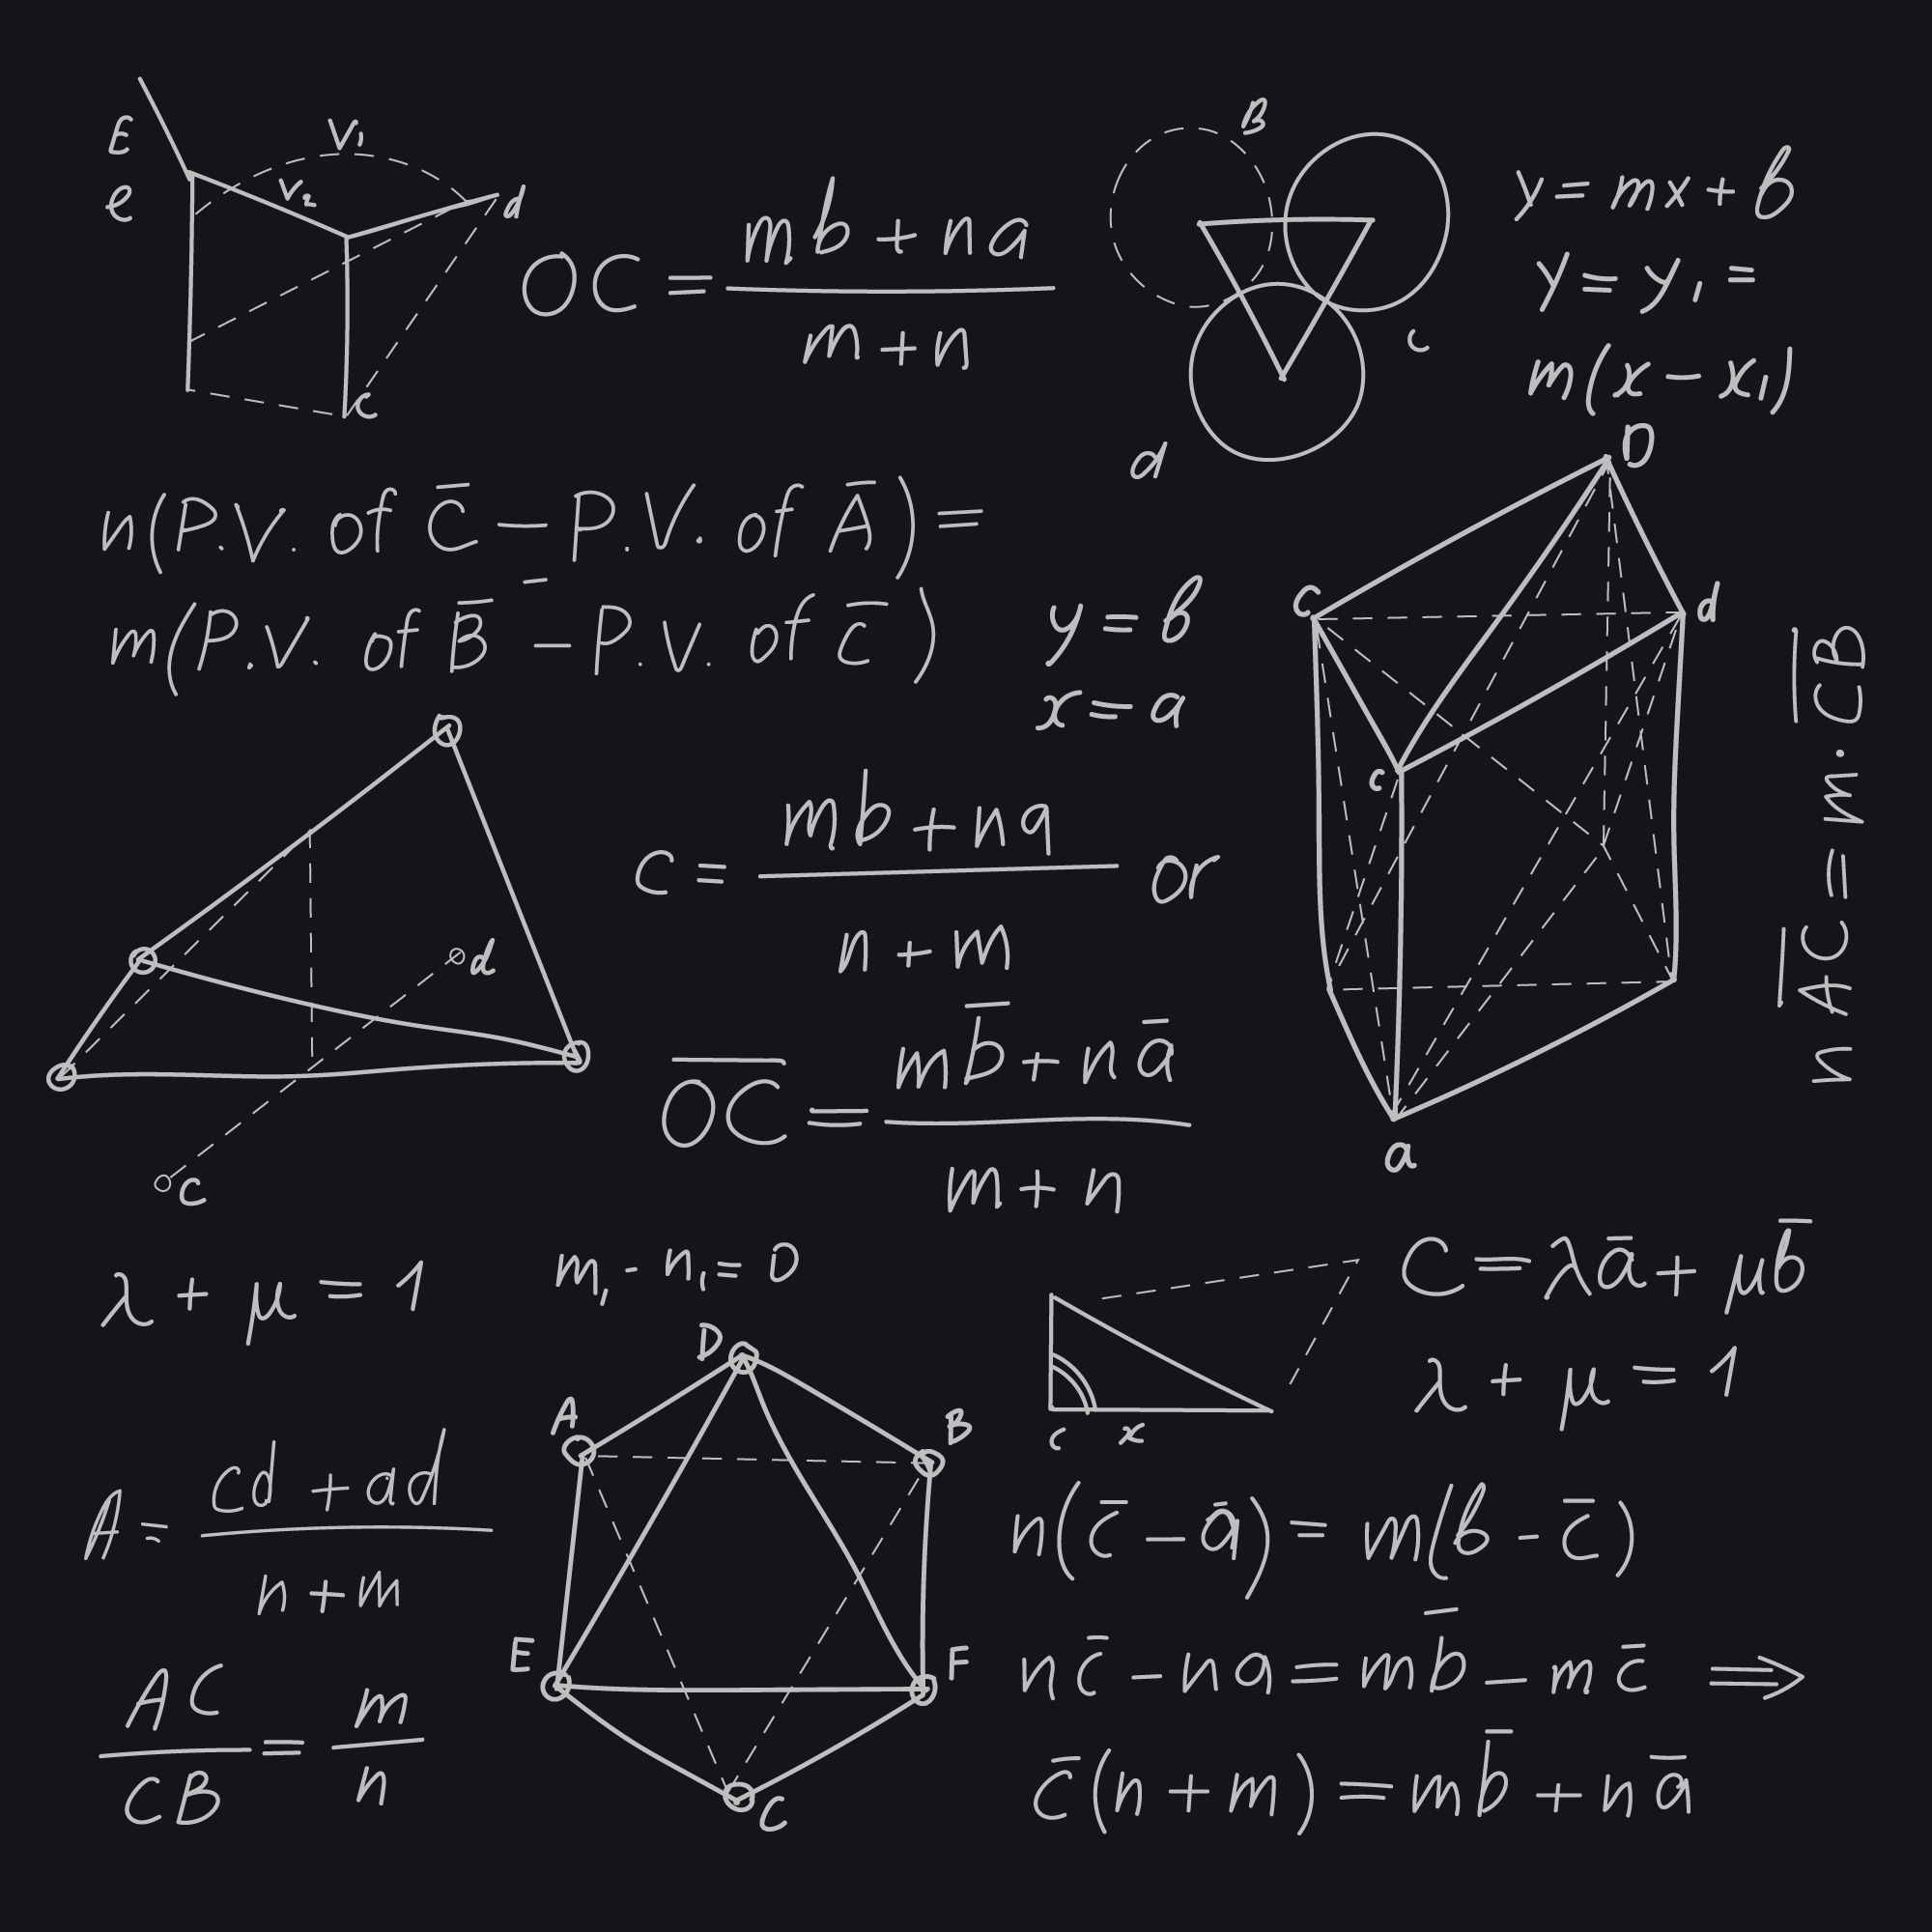 E
e
V₁
V₂
d
c
OC = (mb + na)/(m + n)
B
c
a
y = mx + b
y = y₁ =
m(x − x₁)
n(P.V. of C̄ − P.V. of Ā) =
m(P.V. of B̄ − P.V. of C̄)
y = b
x = a
D
c
d
c
a
n A̅C̅ = m. C̅B̅
d
c
C = (mb + na)/(n + m) or
O̅C̅ = (mb̄ + nā)/(m + n)
λ + μ = 1
m₁ - n₁ = 0
C = λā + μb̄
λ + μ = 1
c x
D
A
B
E
F
C
A = (cd + ad)/(n + m)
AC/CB = m/n
n(c̄ − ā) = m(b − c̄)
nc̄ − na = mb̄ − mc̄ ⇒
c̄(n + m) = mb̄ + nā